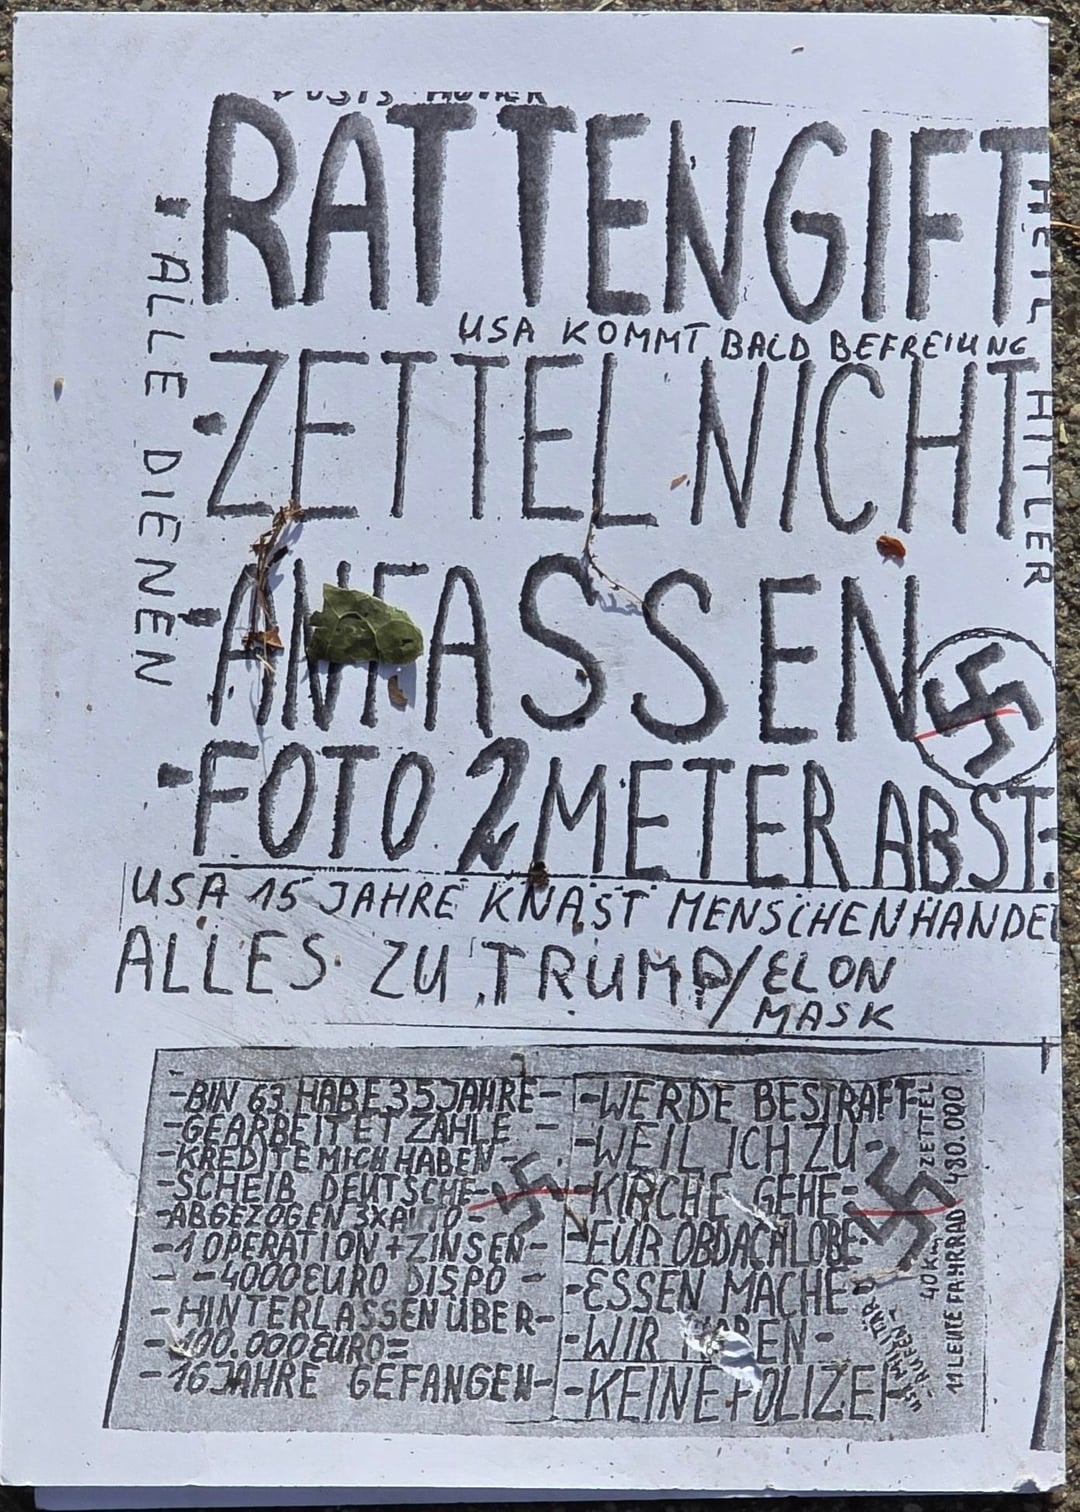 RATTENGIFT
USA KOMMT BALD BEFREIUNG
ZETTEL NICHT
ANFASSEN
FOTO 2 METER ABST.
! ALLE DIENEN
HEIL HITLER
USA 15 JAHRE KNAST MENSCHENHANDEL
ALLES ZU TRUMP/ELON
MASK
-BIN 63 HABE 35 JAHRE-
-GEARBEITET ZAHLE -
-KREDITE MICH HABEN-
-SCHEIB DEUTSCHE-
-ABGEZOGEN 3XAUTO-
-1 OPERATION+ZINSEN-
- -4000 EURO DISPO -
-HINTERLASSEN ÜBER-
-100.000 EURO=
-16 JAHRE GEFANGEN-
-WERDE BESTRAFT-
-WEIL ICH ZU-
-KIRCHE GEHE-
-FÜR OBDACHLOBE-
-ESSEN MACHE-
-WIR HABEN-
-KEINE POLIZEI
40 Km ZETTEL
11 LEUTE FAHRRAD 480.000